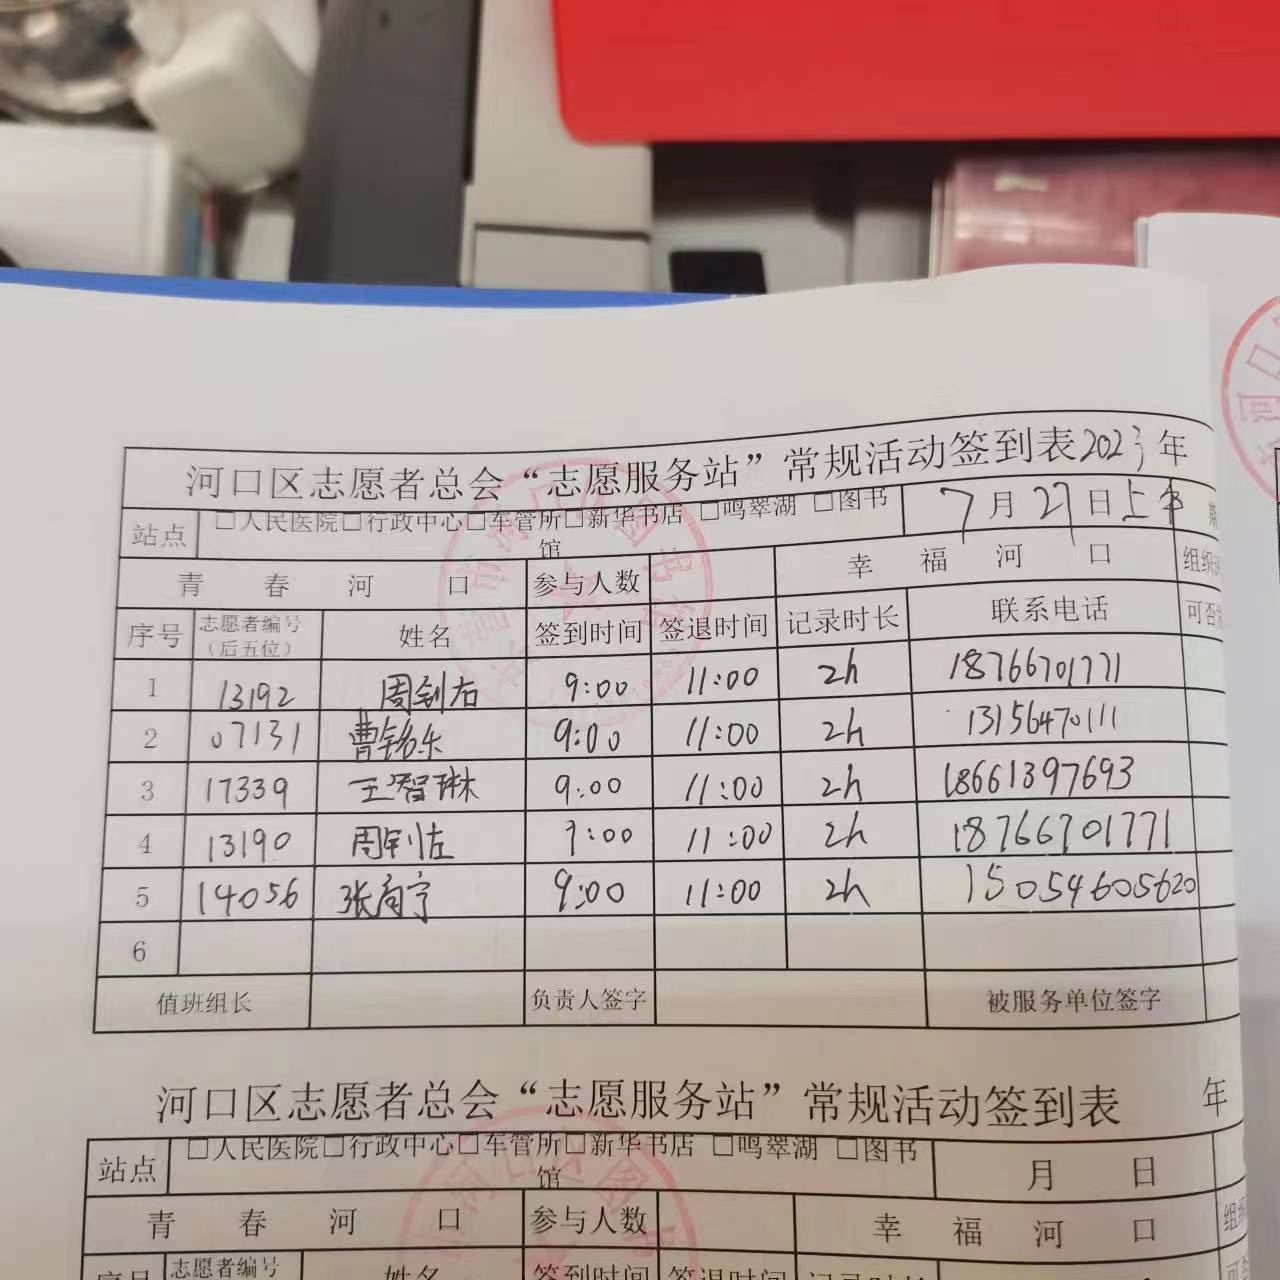 河口区志愿者总会“志愿服务站”常规活动签到表2023年
站点 □人民医院□行政中心□车管所□新华书店 □鸣翠湖 □图书馆 7月27日上午
青春河口 参与人数 幸福河口 组织
序号 志愿者编号（后五位） 姓名 签到时间 签退时间 记录时长 联系电话 可否
1 13192 周钊右 9:00 11:00 2h 18766701771
2 07131 曹铭乐 9:00 11:00 2h 13156470111
3 17339 王智琳 9:00 11:00 2h 18661397693
4 13190 周钊佐 9:00 11:00 2h 18766701771
5 14056 张宁 9:00 11:00 2h 15054605620
6
值班组长 负责人签字 被服务单位签字
河口区志愿者总会“志愿服务站”常规活动签到表 年
站点 □人民医院□行政中心□车管所□新华书店 □鸣翠湖 □图书馆 月 日
青春河口 参与人数 幸福河口 组
志愿者编号 姓名 签到时间 签退时间 记录时长 联系电话